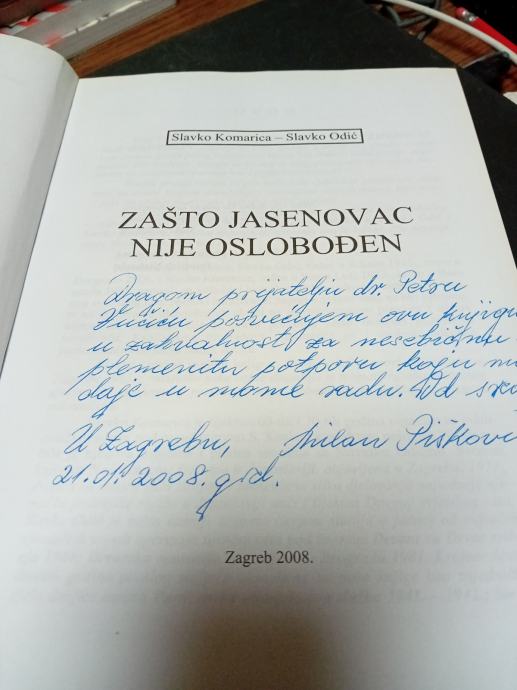 Slavko Komarica – Slavko Odić
ZAŠTO JASENOVAC
NIJE OSLOBOĐEN
Dragom prijatelju dr. Petru
posvećujem ovu knjigu
u zahvalnost za nesebičnu
plemenitu potporu koju
daje u mome radu. Od
U Zagrebu, Milan
21.01.2008. god.
Zagreb 2008.